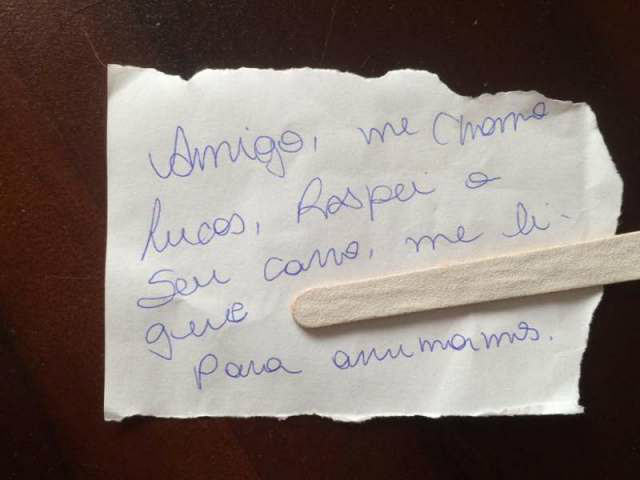 Amigo, me chamo
Lucas, Raspei o
Seu carro, me li-
gue
para arrumarmos.